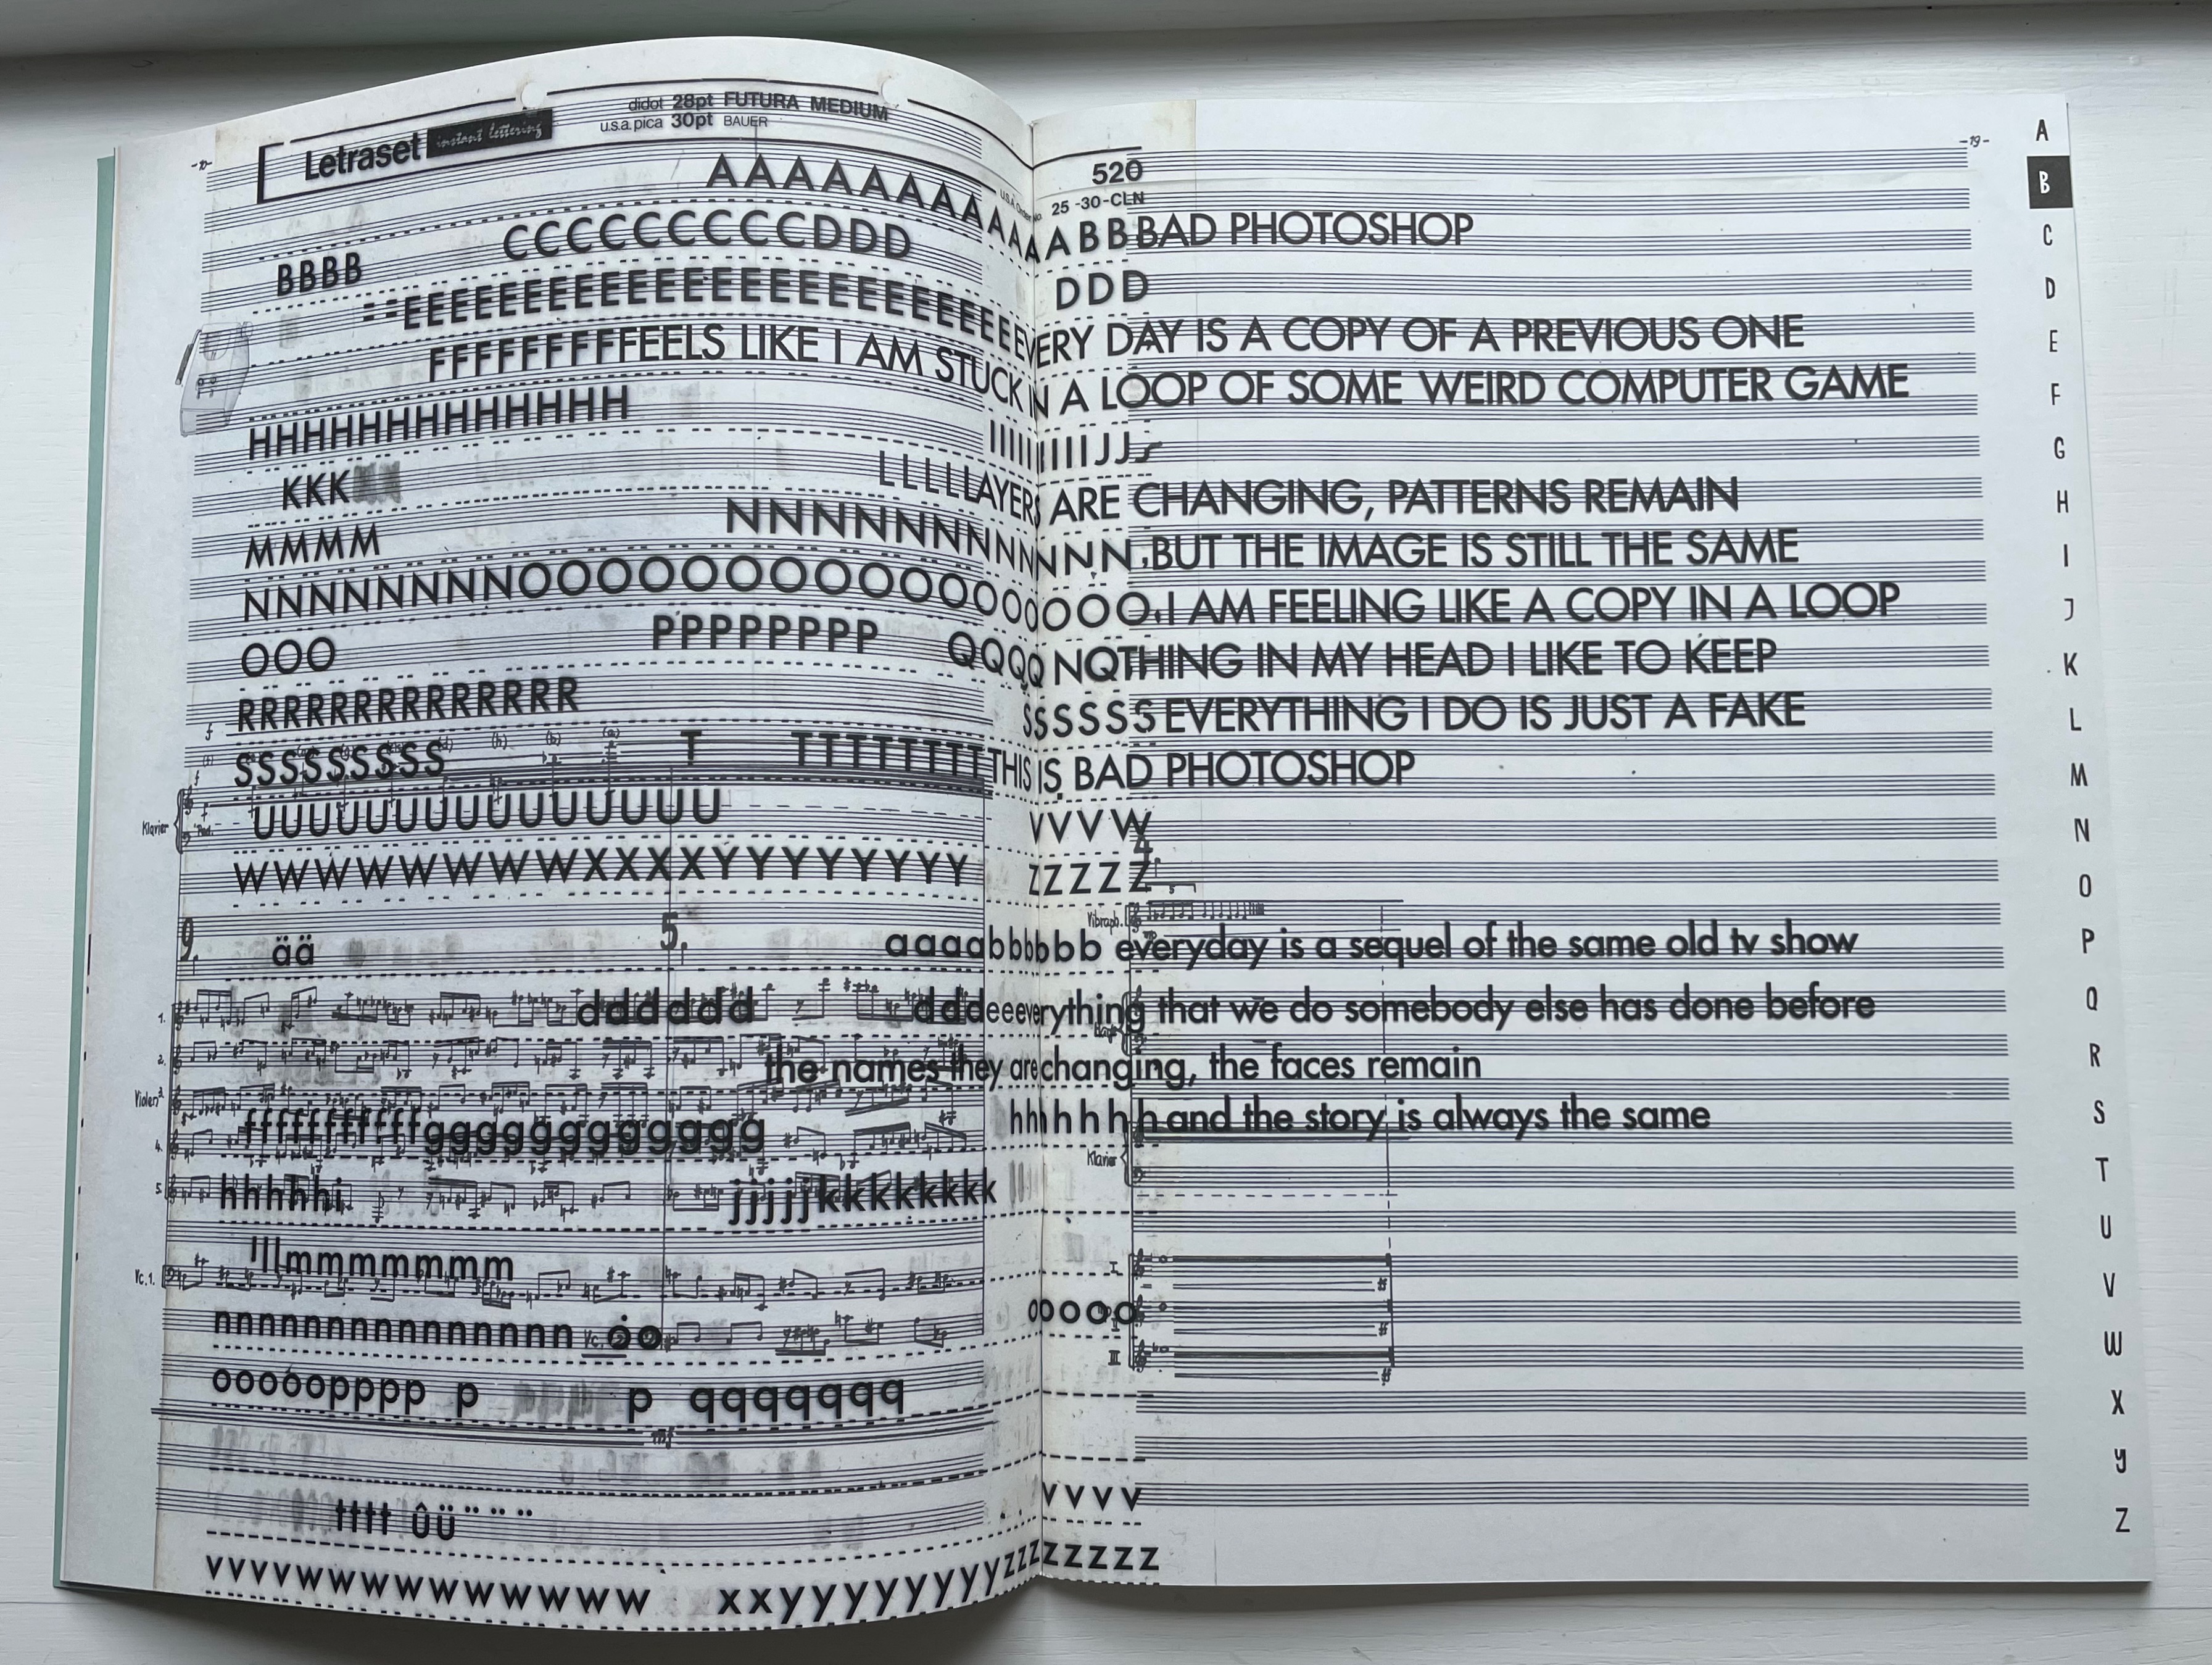 Letraset instant lettering
didot 28pt FUTURA MEDIUM
u.s.a. pica 30pt BAUER
520
25 -30-CLN
-19-
AAAAAAAAAAAAAABBBAD PHOTOSHOP
BBBB CCCCCCCCCCDDD DDD
EEEEEEEEEEEEEEEEEEEEEEEVERY DAY IS A COPY OF A PREVIOUS ONE
FFFFFFFFFEELS LIKE I AM STUCK IN A LOOP OF SOME WEIRD COMPUTER GAME
HHHHHHHHHHHHHH IIIIIIIIJJ
KKK LLLLLAYERS ARE CHANGING, PATTERNS REMAIN
MMMM NNNNNNNNNNNN,BUT THE IMAGE IS STILL THE SAME
NNNNNNNNNOOOOOOOOOOOOOOOOOO.I AM FEELING LIKE A COPY IN A LOOP
OOO PPPPPPPPP QQQQ NOTHING IN MY HEAD I LIKE TO KEEP
RRRRRRRRRRRRRRR SSSSSS EVERYTHING I DO IS JUST A FAKE
SSSSSSSSS T TTTTTTTTTHIS IS BAD PHOTOSHOP
Klavier UUUUUUUUUUUUUUUUU VVVW
4.
WWWWWWWWWXXXXYYYYYYYYY ZZZZZ
9. ää 5. aaaabbbbbb everyday is a sequel of the same old tv show
Vibraph.
1. dddddd dddeeeverything that we do somebody else has done before
2. the names they are changing, the faces remain
4. ffffffffffffggggggggggggg hhhhhhand the story is always the same
Klavier
5. hhhhhi jjjjjkkkkkkkk
lllmmmmmmmm
Vc.1.
I.
nnnnnnnnnnnnnnnnn Vc. òo ooooo
II
ooooopppp p p qqqqqqq
mf
vvvv
tttt ûü
vvvvwwwwwwwwwwww xxyyyyyyyyyzzzzzzzz
A
B
C
D
E
F
G
H
I
J
K
L
M
N
O
P
Q
R
S
T
U
V
W
X
y
Z